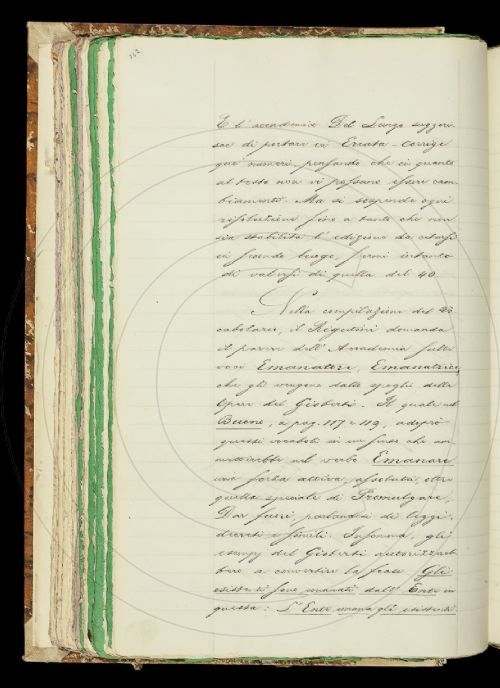 142
E l'accademico Del Lungo suggeri-
sce di portare in Errata-Corrige
que' numeri, pensando che in quanto
al testo non vi possano essere cam-
biamenti. Ma si sospende ogni
risoluzione fino a tanto che non
sia stabilita l'edizione da citarsi
in secondo luogo, fermi intanto
di valersi di quella del 40.
Nella compilazione del Vo-
cabolario, il Rigutini domanda
il parere dell'Accademia sulle
voci Emanatore, Emanatrice,
che gli vengono dallo spoglio delle
Opere del Gioberti. Il quale nel
Buono, a pag. 117 e 119, adoprò
questi vocaboli in un senso che am-
metterebbe al verbo Emanare
una forza attiva, assoluta, oltre
quella speciale di Promulgare,
Dar fuori, parlandosi di leggi,
decreti e simili. Insomma, gli
esempj del Gioberti autorizzereb-
bero a convertire la frase Gli
esistenti sono emanati dall'Ente in
questa: L'Ente emana gli esistenti.